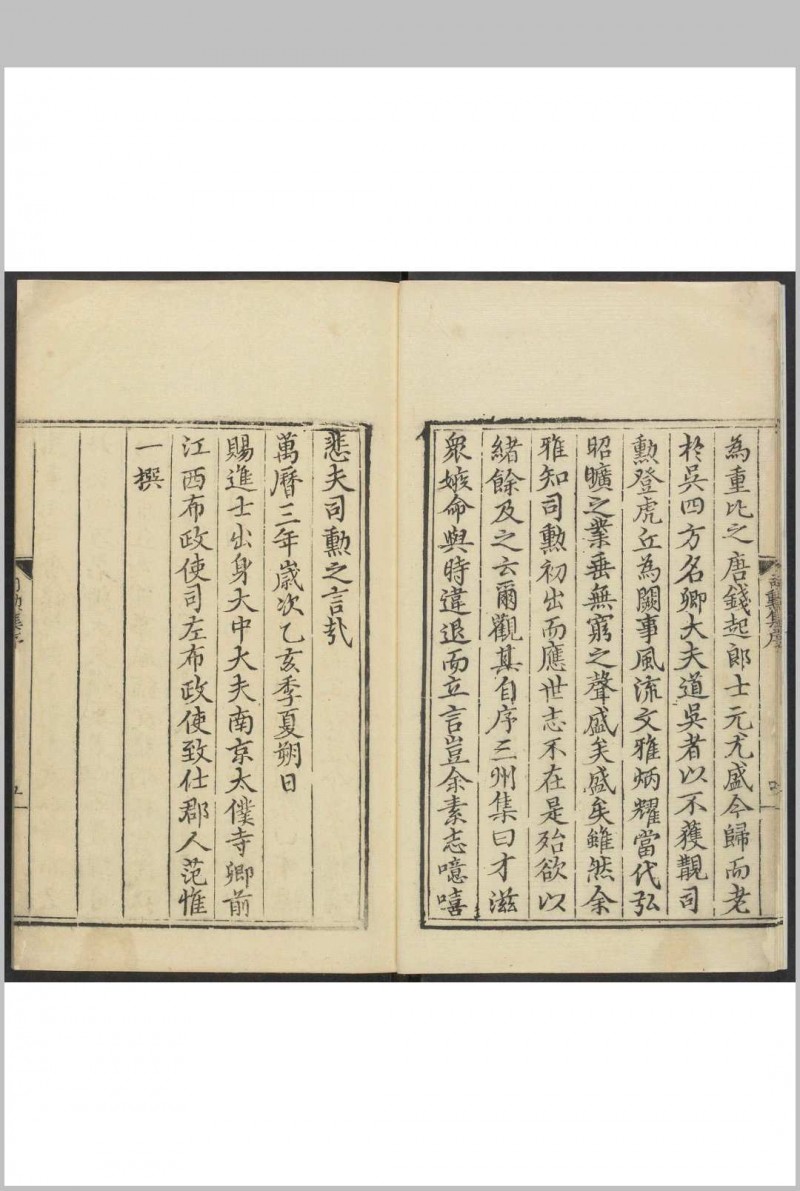 為重比之唐錢起郎士元尤盛今歸而老
於吳四方名卿大夫道吳者以不獲覩司
勲登虎丘為闕事風流文雅炳耀當代弘
昭曠之業垂無窮之聲盛矣盛矣雖然余
雅知司勲初出而應世志不在是殆欲以
緒餘及之云爾觀其自序三州集曰才滋
衆嫉命與時違退而立言豈余素志噫嘻
悲夫司勲之言哉
萬曆三年歲次乙亥季夏朔日
賜進士出身大中大夫南京太僕寺卿前
江西布政使司左布政使致仕郡人范惟
一撰